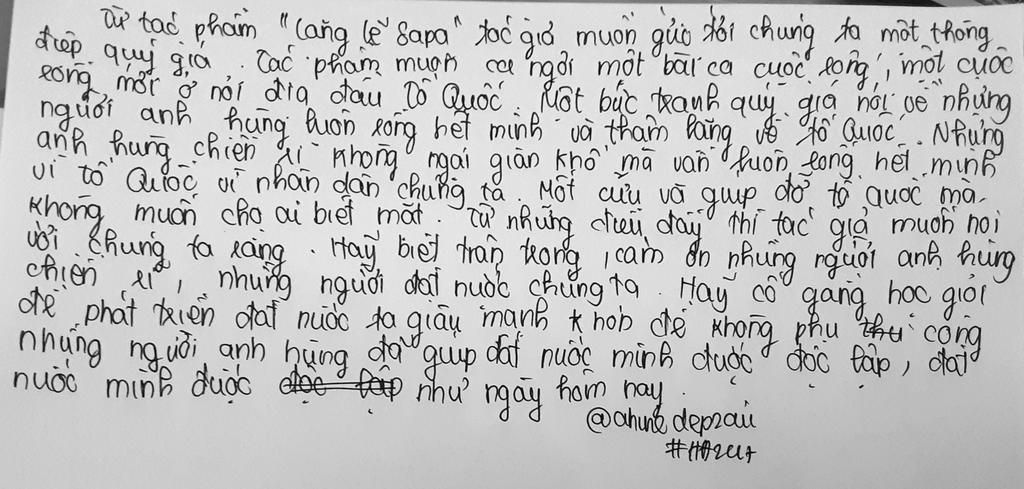 Từ tác phẩm "Lặng lẽ Sapa" tác giả muốn gửi tới chúng ta một thông
điệp quý giá. Tác phẩm muốn ca ngợi một bài ca cuộc sống, một cuộc
sống mới ở nơi địa đầu Tổ Quốc. Một bức tranh quý giá nói về những
người anh hùng luôn sống hết mình và thầm lặng về tổ Quốc. Những
anh hùng chiến sĩ không ngại giản khổ mà vẫn luôn sống hết mình
vì tổ Quốc vì nhân dân chúng ta. Một cứu và giúp đỡ tổ quốc mà
không muốn cho ai biết mặt. Từ những điều đấy thì tác giả muốn nói
với chúng ta rằng. Hãy biết trân trọng, cảm ơn những người anh hùng
chiến sĩ, những người đất nước chúng ta. Hãy cố gắng học giỏi
để phát triển đất nước ta giàu mạnh để không phụ công
những người anh hùng đã giúp đất nước mình được độc lập, đất
nước mình được như ngày hôm nay.